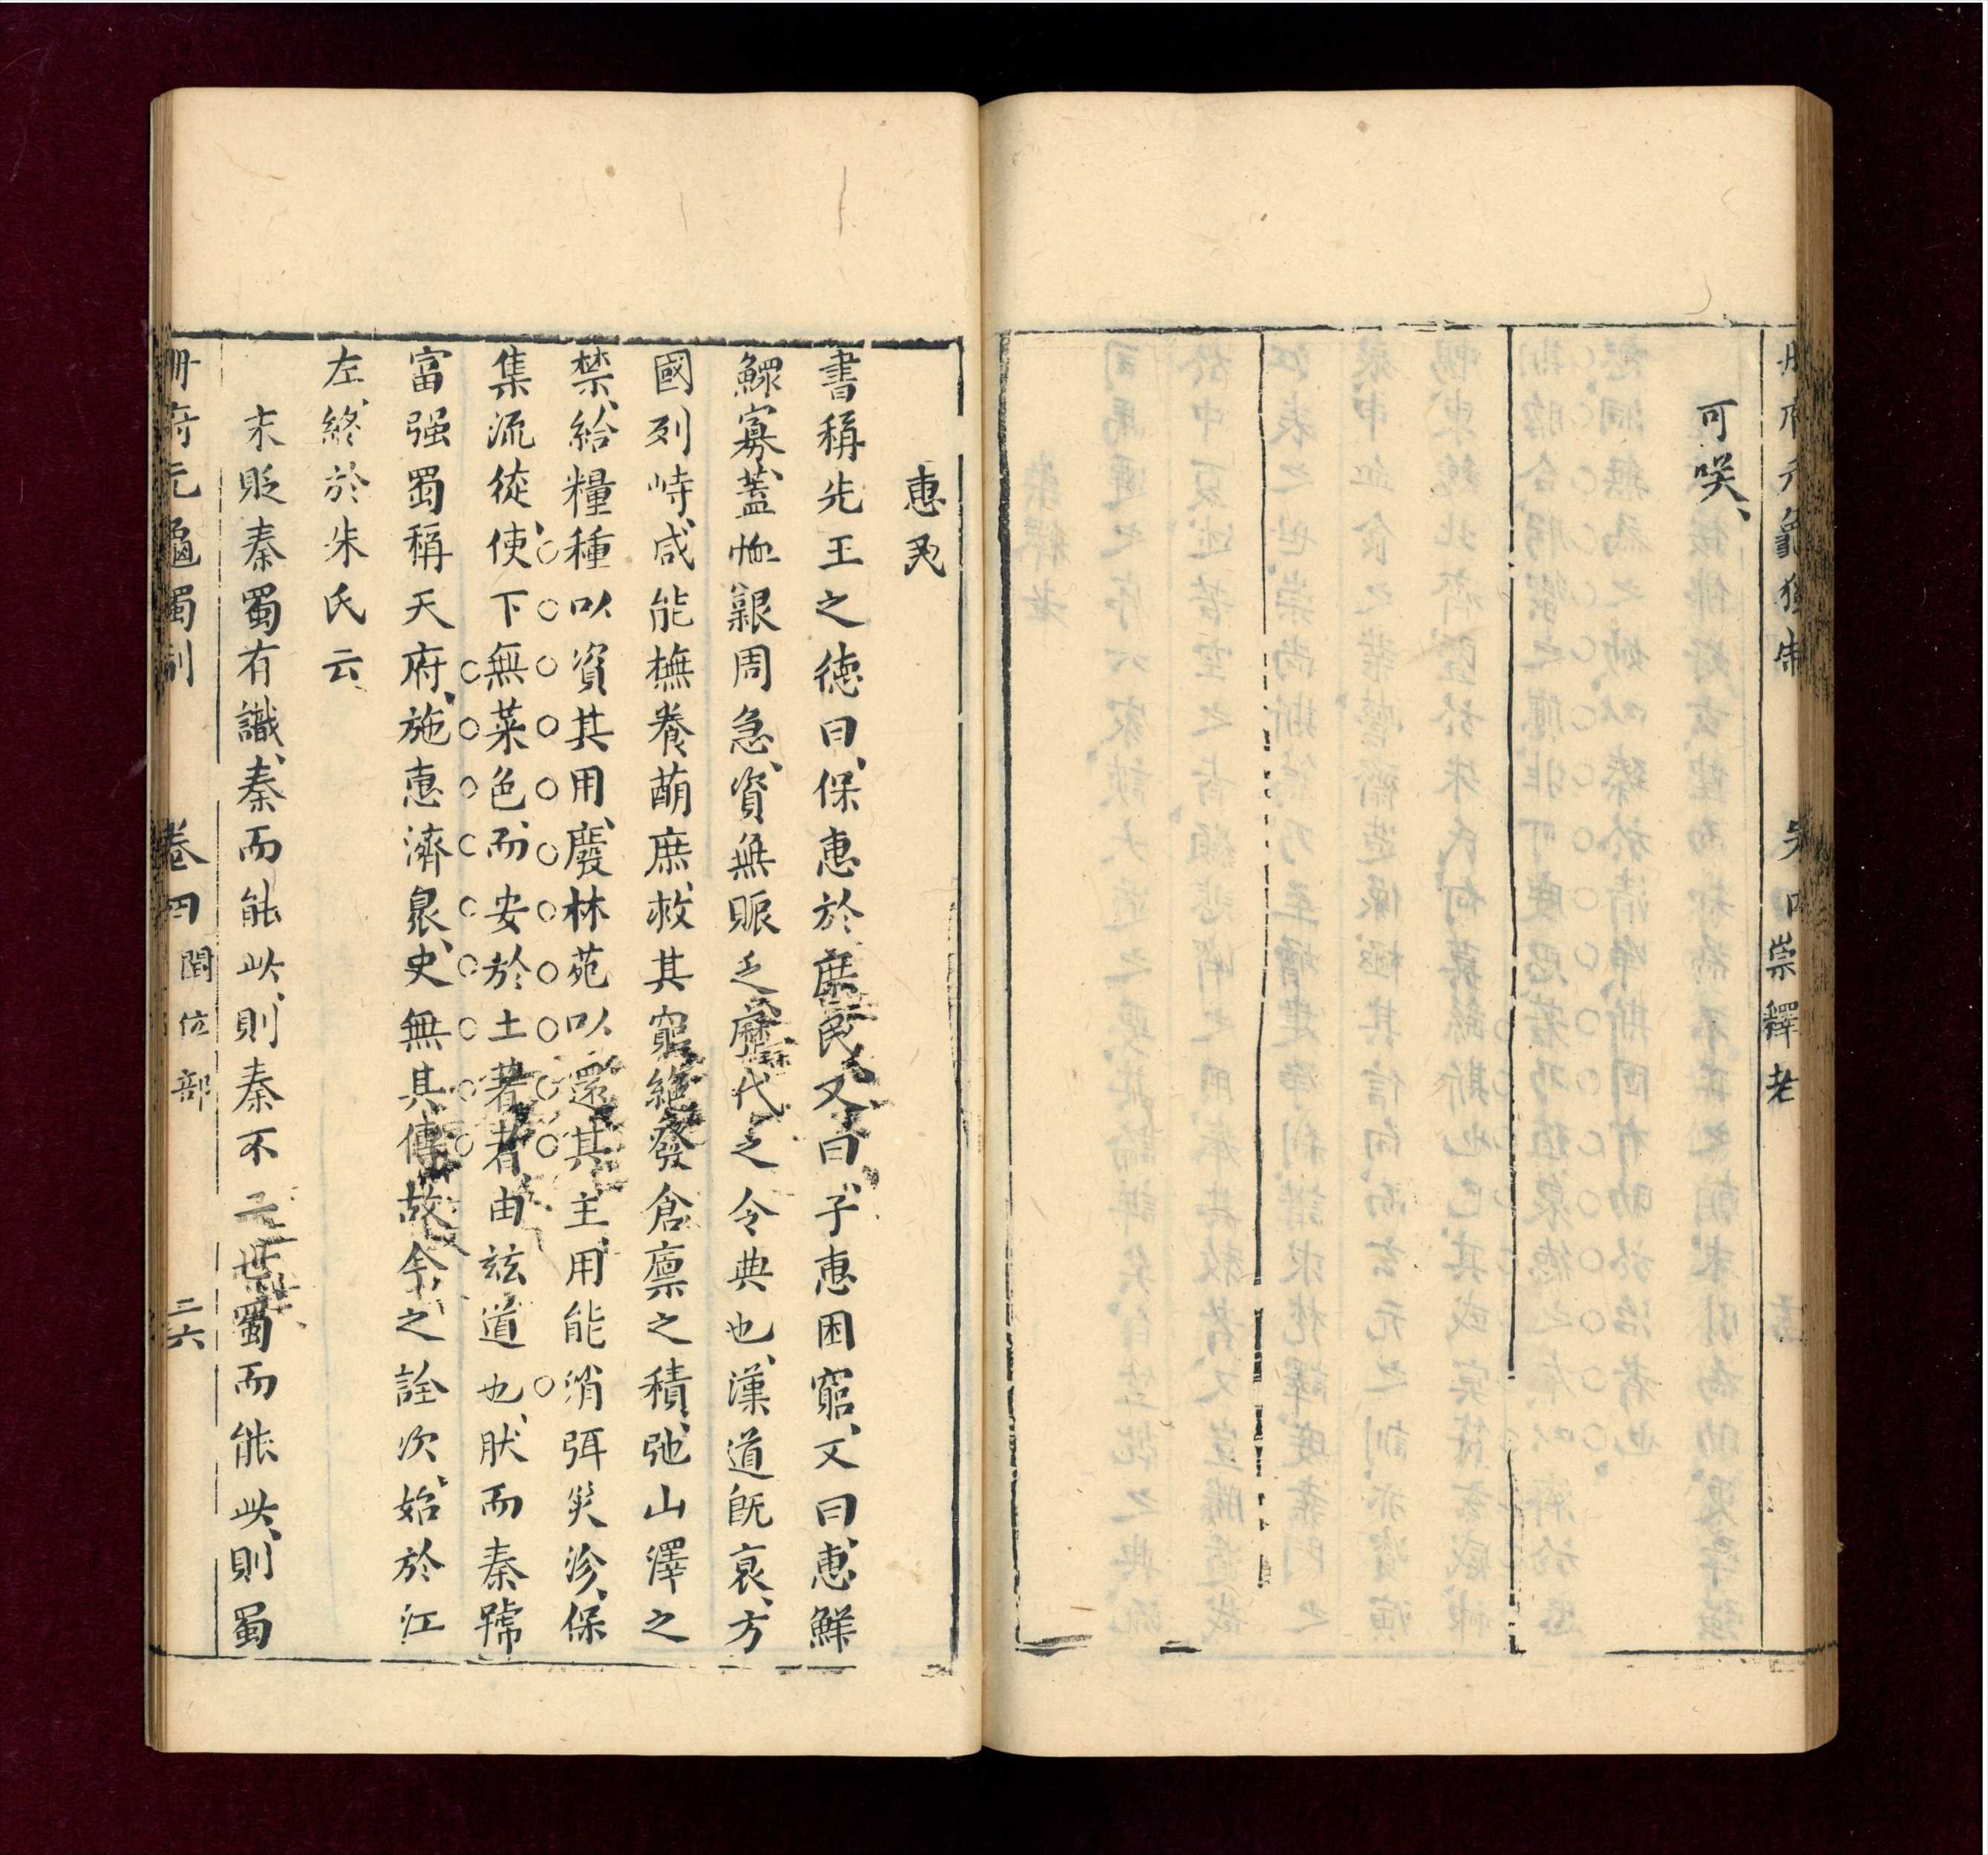 冊府元龜獨制
卷四崇釋老
可咲、
惠民
書稱先王之德曰、保惠於庶民又曰、子惠困窮、又曰、惠鮮
鰥寡、蓋恤艱周急、資無賑乏歷代之令典也、漢道既衰、方
國列峙、咸能撫養萌庶、救其窮絕發倉廩之積、弛山澤之
禁、給糧種以資其用、廢林苑以還其主、用能消弭災沴、保
集流徙、使下無菜色、而安於土著者、由茲道也、肰而秦號
富强蜀稱天府、施惠濟衆、史無其傳、故今之詮次、始於江
左、終於朱氏云
末貶秦蜀有識、秦而能此、則秦不二世蜀而能此、則蜀
冊府元龜獨制
卷四閏位部
二六